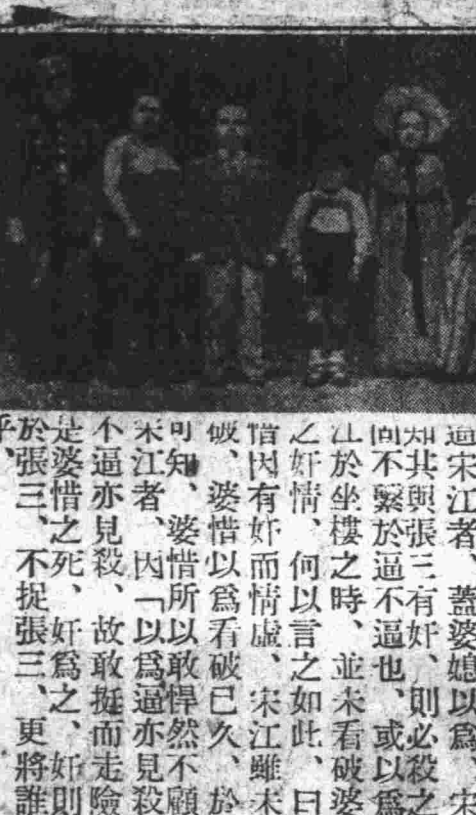 逼宋江者、蓋婆媳以爲、宋
知其與張三有奸、則必殺之
間不繫於逼不逼也、或以爲
江於坐樓之時、並未看破婆
之奸情、何以言之如此、曰
惜因有奸而情虛、宋江雖未
破、婆惜以爲看破已久、於
可知、婆惜所以敢悍然不顧
宋江者、因「以爲逼亦見殺
不逼亦見殺、故敢挺而走險
是婆惜之死、奸爲之、奸則
於張三、不捉張三、更將誰
乎、